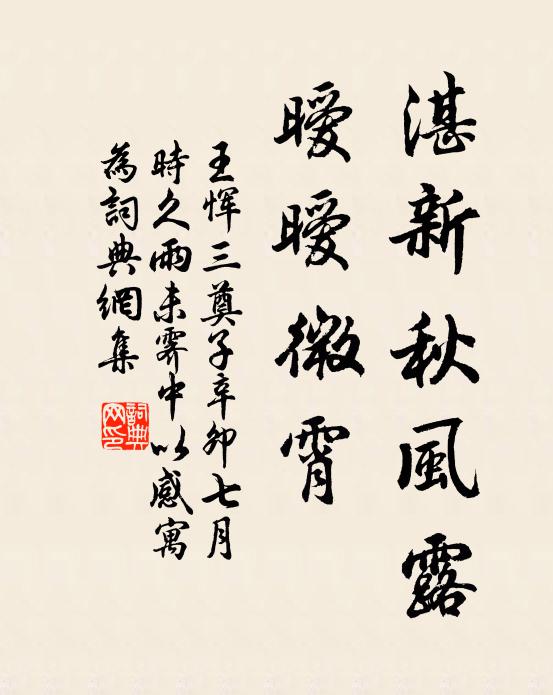 湛新秋風露
曖曖微霄
王惲三奠子辛卯七月
時久雨未霽中以感寓
為詞典網集
詞典
网印